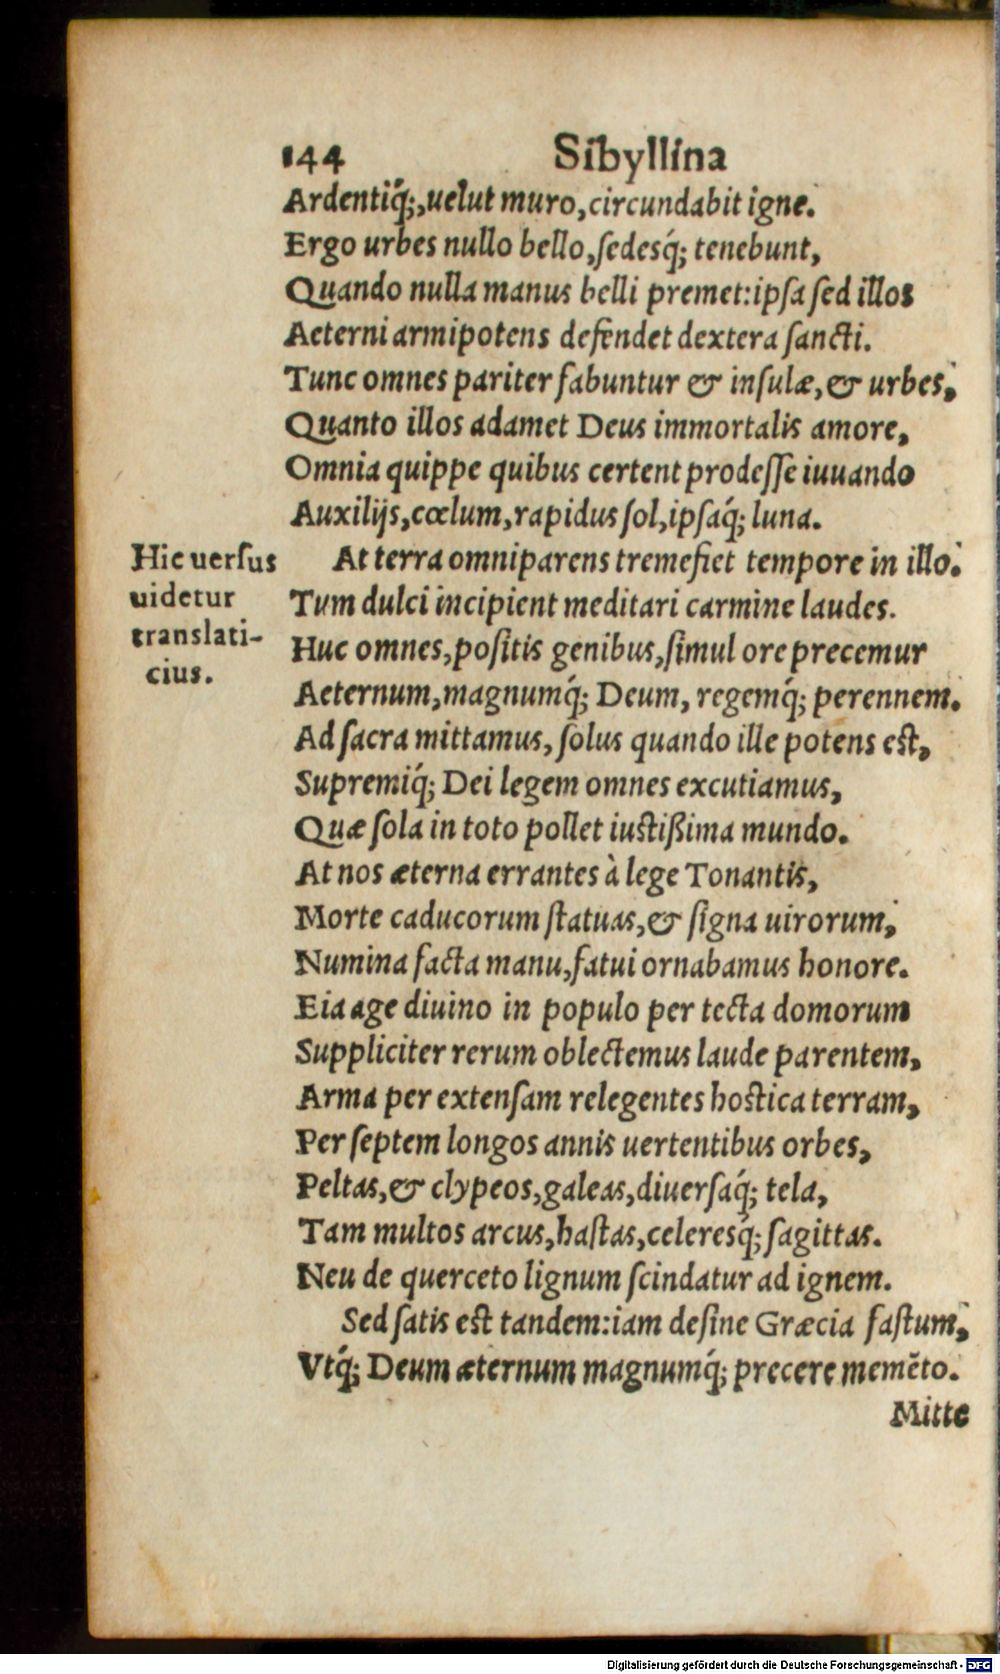 144 Sibyllina
Ardentiq́;, uelut muro, circundabit igne.
Ergo urbes nullo bello, ſedesq́; tenebunt,
Quando nulla manus belli premet: ipſa ſed illos
Aeterni armipotens defendet dextera ſancti.
Tunc omnes pariter fabuntur & inſulæ, & urbes,
Quanto illos adamet Deus immortalis amore,
Omnia quippe quibus certent prodeſſe iuuando
Auxilijs, cœlum, rapidus ſol, ipſaq́; luna.
At terra omniparens tremefiet tempore in illo.
Tum dulci incipient meditari carmine laudes.
Huc omnes, poſitis genibus, ſimul ore precemur
Aeternum, magnumq́; Deum, regemq́; perennem.
Ad ſacra mittamus, ſolus quando ille potens eſt,
Supremiq́; Dei legem omnes excutiamus,
Quæ ſola in toto pollet iuſtißima mundo.
At nos æterna errantes à lege Tonantis,
Morte caducorum ſtatuas, & ſigna uirorum,
Numina facta manu, fatui ornabamus honore.
Eia age diuino in populo per tecta domorum
Suppliciter rerum oblectemus laude parentem,
Arma per extenſam relegentes hoſtica terram,
Per ſeptem longos annis uertentibus orbes,
Peltas, & clypeos, galeas, diuerſaq́; tela,
Tam multos arcus, haſtas, celeresq́; ſagittas.
Neu de querceto lignum ſcindatur ad ignem.
Sed ſatis eſt tandem: iam deſine Græcia faſtum,
Vtq́; Deum æternum magnumq́; precere memẽto.
Mitte
Hic uerſus
uidetur
translati-
cius.
Digitalisierung gefördert durch die Deutsche Forschungsgemeinschaft - DFG